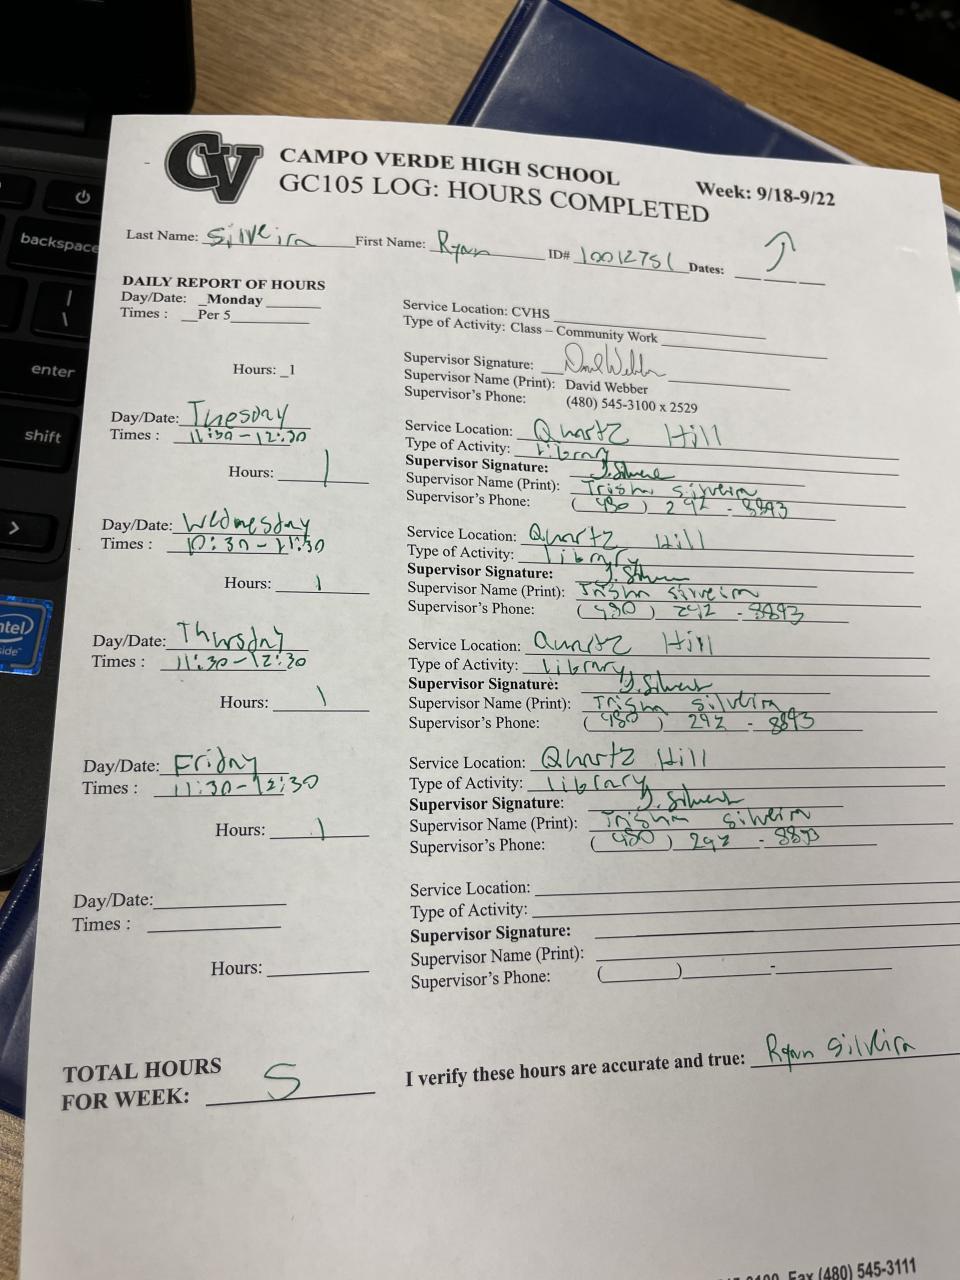 CV
CAMPO VERDE HIGH SCHOOL
GC105 LOG: HOURS COMPLETED
Week: 9/18-9/22
Last Name: Silveira First Name: Ryan ID# 10012751 Dates:
DAILY REPORT OF HOURS
Day/Date: Monday
Times : Per 5
Hours: 1
Service Location: CVHS
Type of Activity: Class – Community Work
Supervisor Signature: David Webber
Supervisor Name (Print): David Webber
Supervisor's Phone: (480) 545-3100 x 2529
Day/Date: Tuesday
Times : 11:30-12:30
Hours: 1
Service Location: Quartz Hill
Type of Activity: Library
Supervisor Signature:
Supervisor Name (Print): Trisha Silveira
Supervisor's Phone: (480) 292-8893
Day/Date: Wednesday
Times : 10:30-11:30
Hours: 1
Service Location: Quartz Hill
Type of Activity: library
Supervisor Signature:
Supervisor Name (Print): Trisha Silveira
Supervisor's Phone: (480) 292-8893
Day/Date: Thursday
Times : 11:30-12:30
Hours: 1
Service Location: Quartz Hill
Type of Activity: library
Supervisor Signature:
Supervisor Name (Print): Trisha Silveira
Supervisor's Phone: (480) 292-8893
Day/Date: Friday
Times : 11:30-12:30
Hours: 1
Service Location: Quartz Hill
Type of Activity: library
Supervisor Signature:
Supervisor Name (Print): Trisha Silveira
Supervisor's Phone: (480) 292-8893
Day/Date:
Times :
Hours:
Service Location:
Type of Activity:
Supervisor Signature:
Supervisor Name (Print):
Supervisor's Phone: ( ) -
TOTAL HOURS
FOR WEEK: 5
I verify these hours are accurate and true: Ryan Silveira
Fax (480) 545-3111
backspace
|
\
enter
shift
>
intel